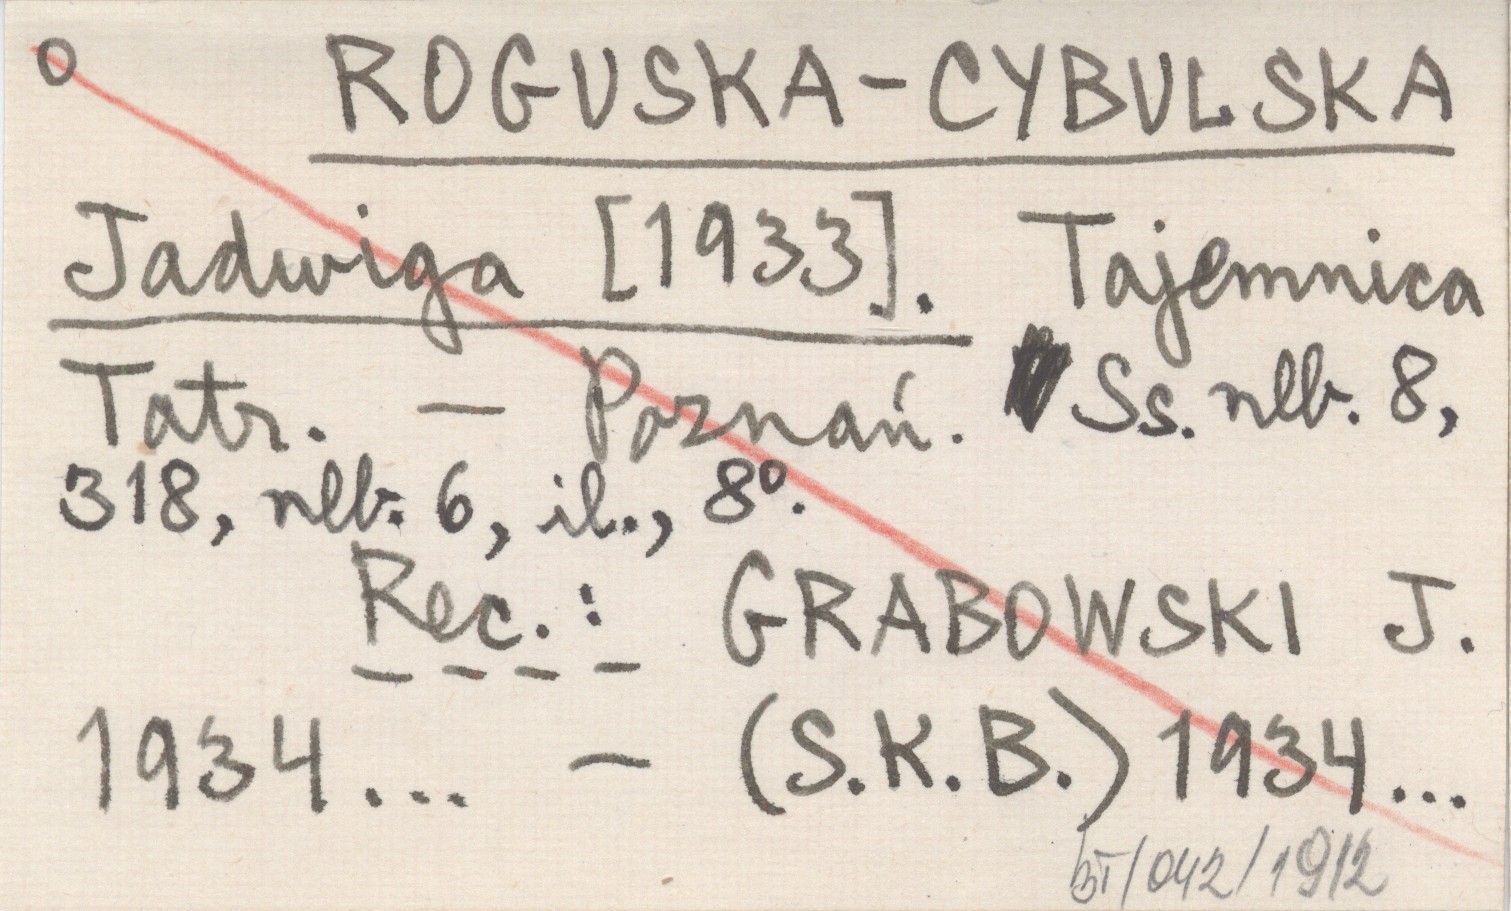 o ROGUSKA-CYBULSKA
Jadwiga [1933]. Tajemnica
Tatr. — Poznań. Ss. nlb. 8,
318, nlb. 6, il., 8º.
Rec.: GRABOWSKI J.
1934... — (S.K.B.) 1934...
/042/1912